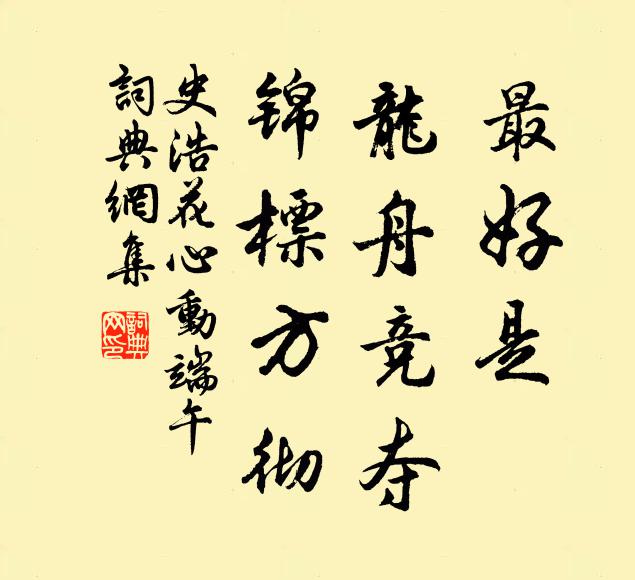 最好是
龍舟竞夺
锦標方彻
史浩花心動端午
詞典網集
詞典网印